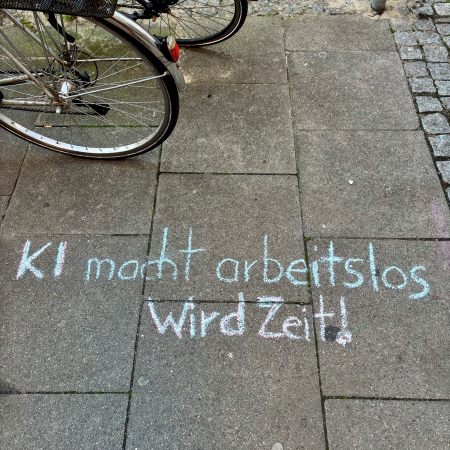 KI macht arbeitslos
Wird Zeit!